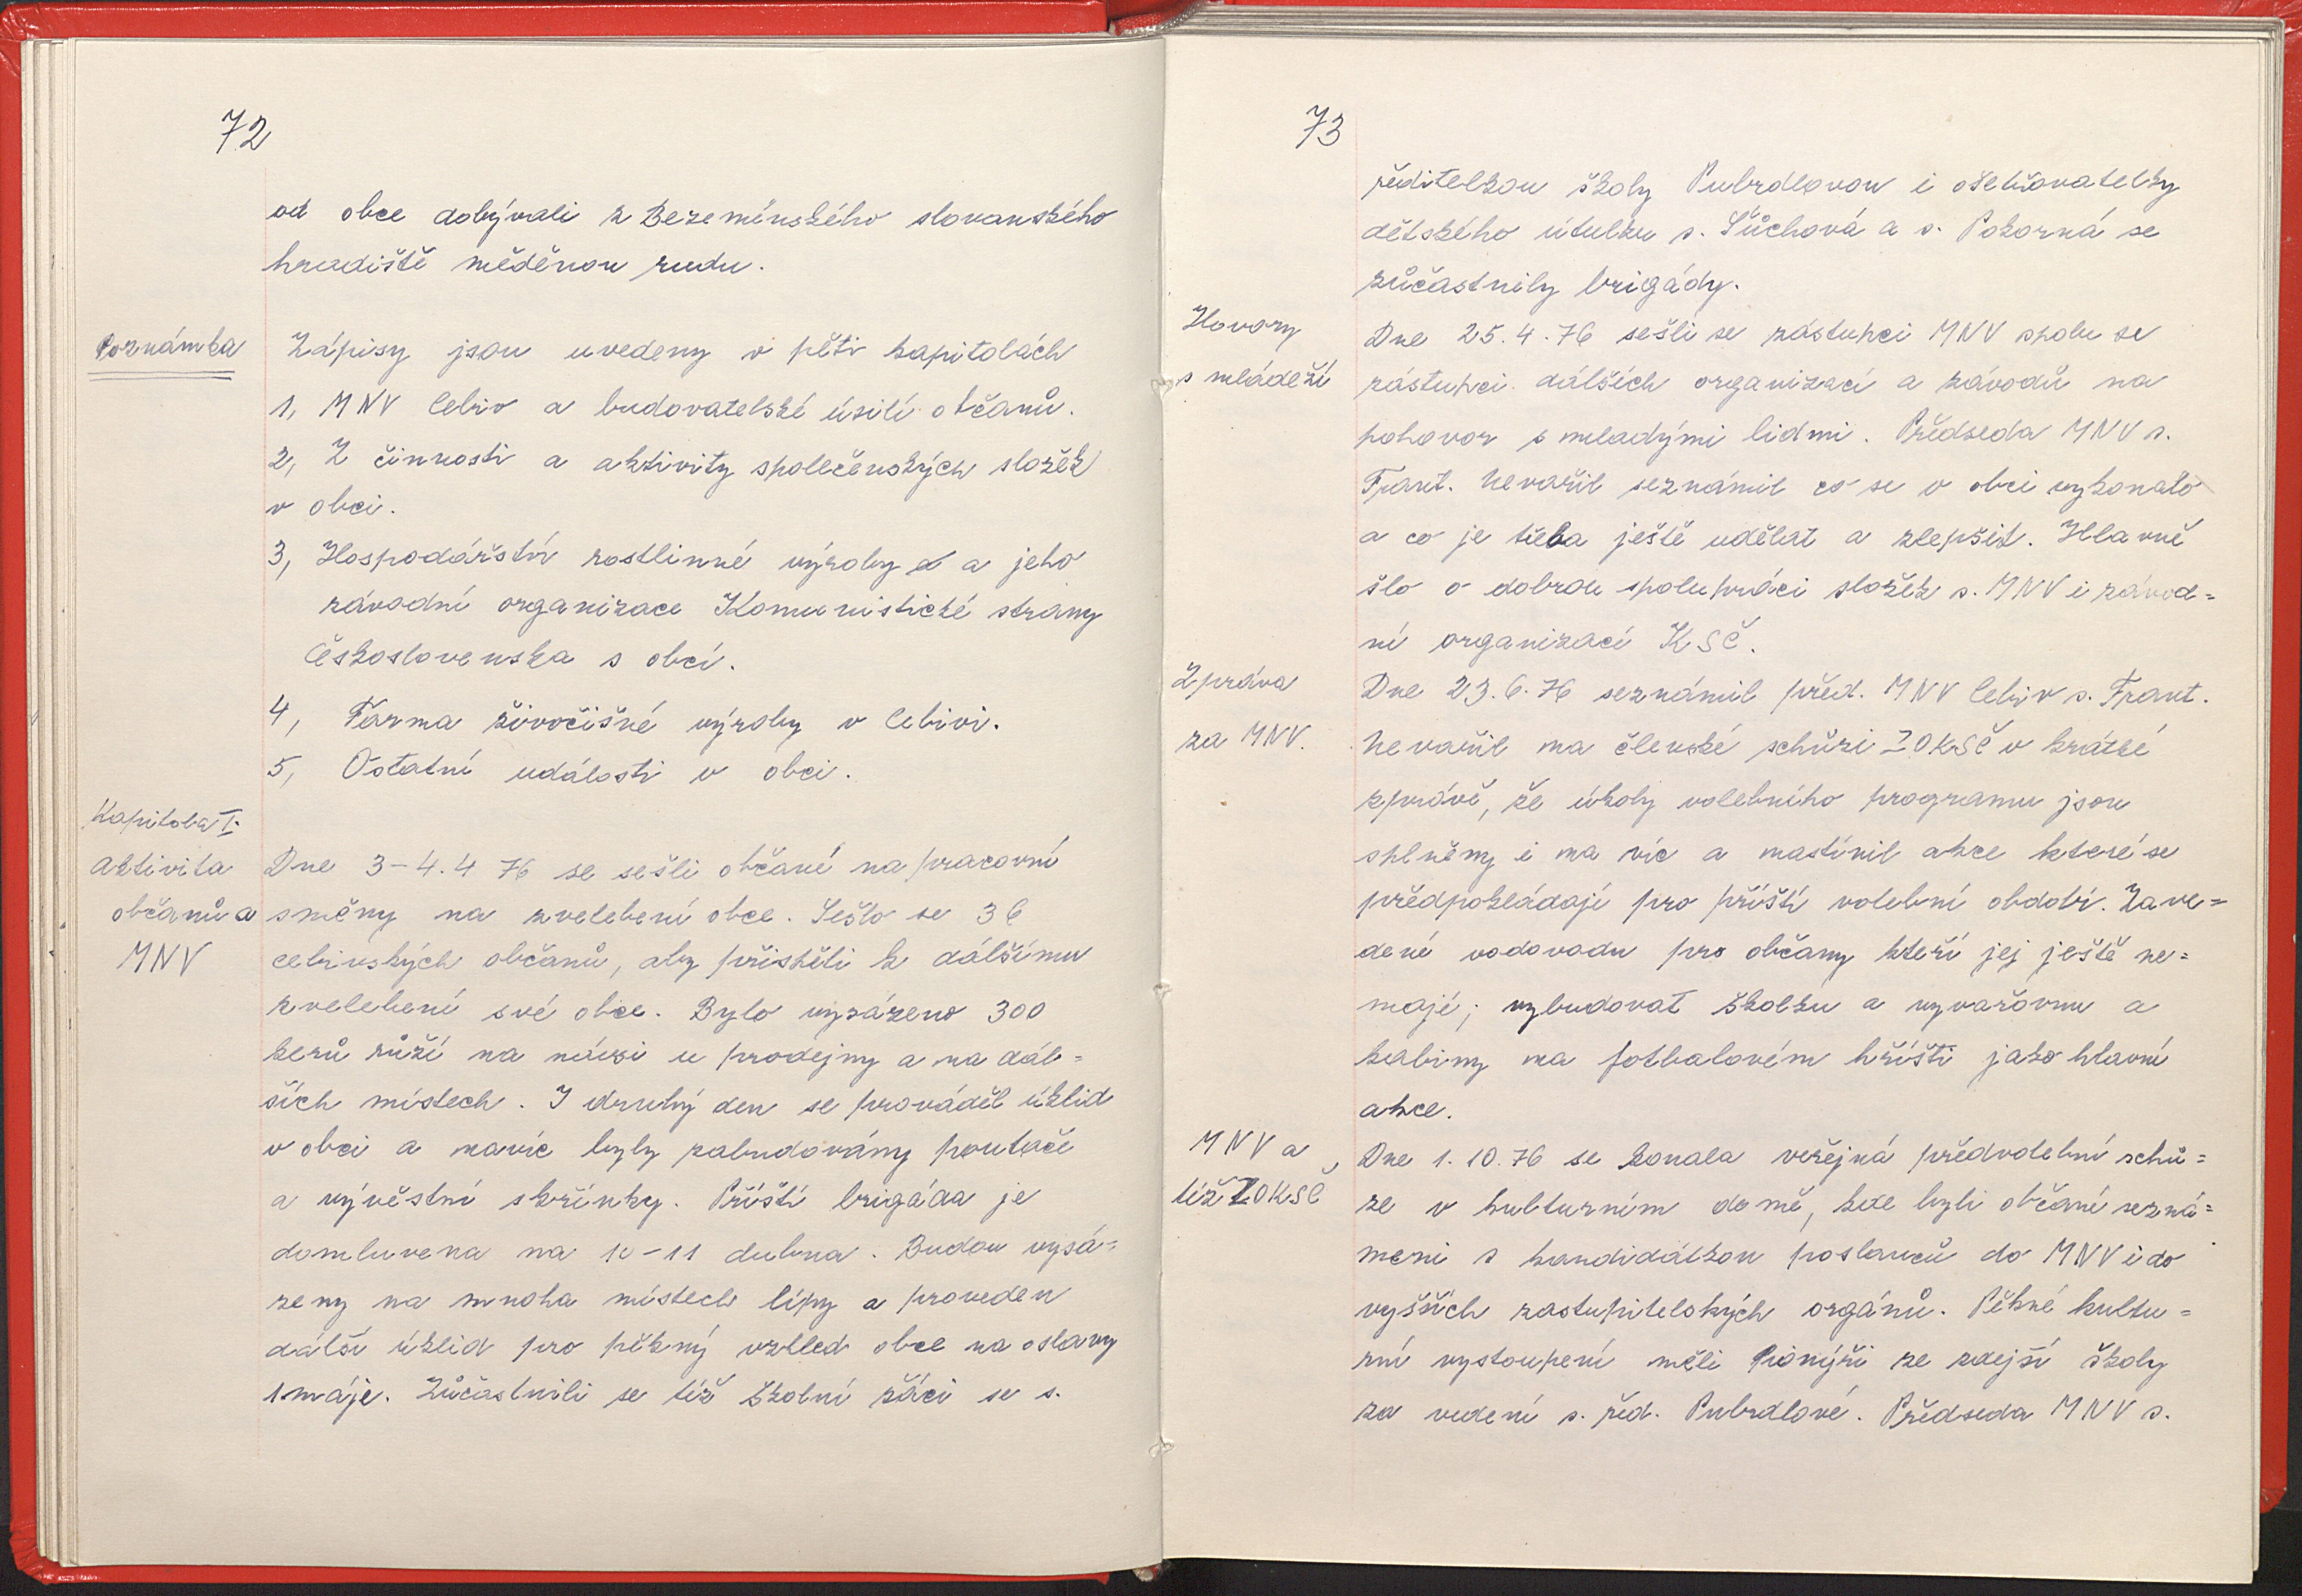 72
od obce dobývali z Bezemínského slovanského
hradiště měděnou rudu.
Poznámka
Zápisy jsou uvedeny v pěti kapitolách
1, MNV Cebiv a budovatelské úsilí občanů.
2, Z činnosti a aktivity společenských složek
v obci.
3, Hospodářství rostlinné výroby a jeho
závodní organizace Komunistické strany
Československa s obcí.
4, Farma živočišné výroby v Cebivi.
5, Ostatní události v obci.
Kapitola I.
Aktivita
občanů a
MNV
Dne 3-4.4 76 se sešli občané na pracovní
směny na zvelebení obce. Sešlo se 36
cebivských občanů, aby přispěli k dálšímu
zvelebení své obce. Bylo vysázeno 300
kerů růží na návsi u prodejny a na dál=
ších místech. I druhý den se prováděl úklid
v obci a navíc byly zabudovány poutače
a vývěstní skřínky. Příští brigáda je
domluvena na 10-11 dubna. Budou vysá=
zeny na mnoha místech lípy a proveden
dálší úklid pro pěkný vzhled obce na oslavy
1 máje. Zůčastnili se též školní žáci se s.
73
ředitelkou školy Pubrdlovou i ošetřovatelky
dětského útulku s. Šůchová a s. Pokorná se
zůčastnily brigády.
Hovory
s mládeží
Dne 25.4.76 sešli se zástupci MNV spolu se
zástupci dálších organizací a závodů na
pohovor s mladými lidmi. Předseda MNV s.
Frant. Nevařil seznámil co se v obci vykonalo
a co je třeba ještě udělat a zlepšit. Hlavně
šlo o dobrou spolupráci složek s. MNV i závod=
ní organizací KSČ.
Zpráva
za MNV.
Dne 23.6.76 seznámil před. MNV Cebiv s. Frant.
Nevařil na členské schůzi ZOKSČ v krátké
zprávě, že úkoly volebního programu jsou
splněny i na víc a nastínil akce které se
předpokládají pro příští volební období. Zave=
dení vodovodu pro občany kteří jej ještě ne=
mají; vybudovat školku a vyvařovnu a
kabiny na fotbalovém hřišti jako hlavní
akce.
MNV a
též ZOKSČ
Dne 1.10.76 se konala veřejná předvolební schů=
ze v kulturním domě, kde byli občané sezná=
meni s kandidátkou poslanců do MNV i do
vyšších zastupitelských orgánů. Pěkné kultu=
rní vystoupení měli Pionýři ze zdejší školy
za vedení s. řed. Pubrdlové. Předseda MNV s.